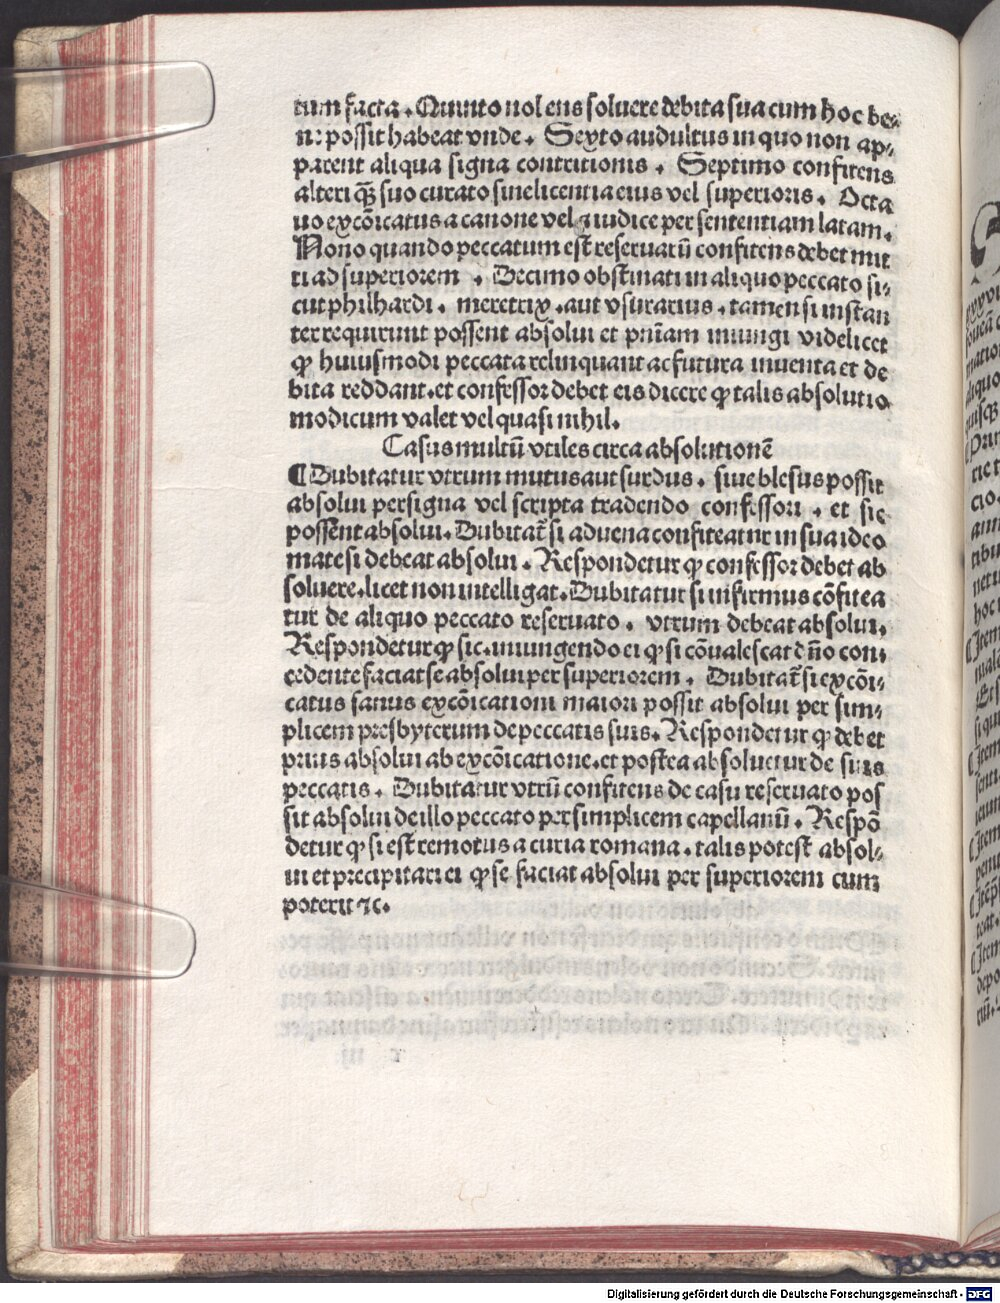 tum facta. Quinto nolens soluere debita sua cum hoc be⸗
ne possit habeat vnde. Sexto audultus in quo non ap⸗
parent aliqua signa contritionis. Septimo confitens
alteri qȝ suo curato sine licentia eius vel superioris. Octa
uo excōicatus a canone vel a iudice per sententiam latam.
Nono quando peccatum est reseruatū confitens debet mit
ti ad superiorem. Decimo obstinati in aliquo peccato si⸗
cut philhardi. meretrix. aut vsurarius. tamen si instan
ter requirunt possent absolui et pn̄iam iniungi videlicet
ꝙ huiusmodi peccata relinquant ac futura inuenta et de
bita reddant. et confessor debet eis dicere ꝙ talis absolutio
modicum valet vel quasi nihil.
Casus multū vtiles circa absolutionē
¶ Dubitatur vtrum mutus aut surdus. siue blesus possit
absolui per signa vel scripta tradendo confessori. et sic
possent absolui. Dubitat̄ si aduena confiteatur in sua ideo
mate si debeat absolui. Respondetur ꝙ confessor debet ab
soluere. licet non intelligat. Dubitatur si infirmus cōfitea
tur de aliquo peccato reseruato. vtrum debeat absolui.
Respondetur ꝙ sic. iniungendo ei ꝙ si cōualescat dn̄o con⸗
cedente faciat se absolui per superiorem. Dubitat̄ si excōi⸗
catus sanus excōicationi maiori possit absolui per sim⸗
plicem presbyterum de peccatis suis. Respondetur ꝙ debet
prius absolui ab excōicatione. et postea absoluetur de suis
peccatis. Dubitatur vtrū confitens de casu reseruato pos
sit absolui de illo peccato per simplicem capellanū. Respō
detur ꝙ si est remotus a curia romana. talis potest absol⸗
ui et precipitari ei ꝙ se faciat absolui per superiorem cum
poterit ⁊c.
Digitalisierung gefördert durch die Deutsche Forschungsgemeinschaft - DFG